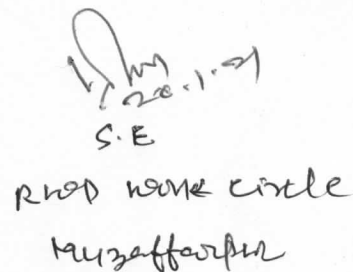 20.1.21
S.E
RWD work circle
Muzaffarpur